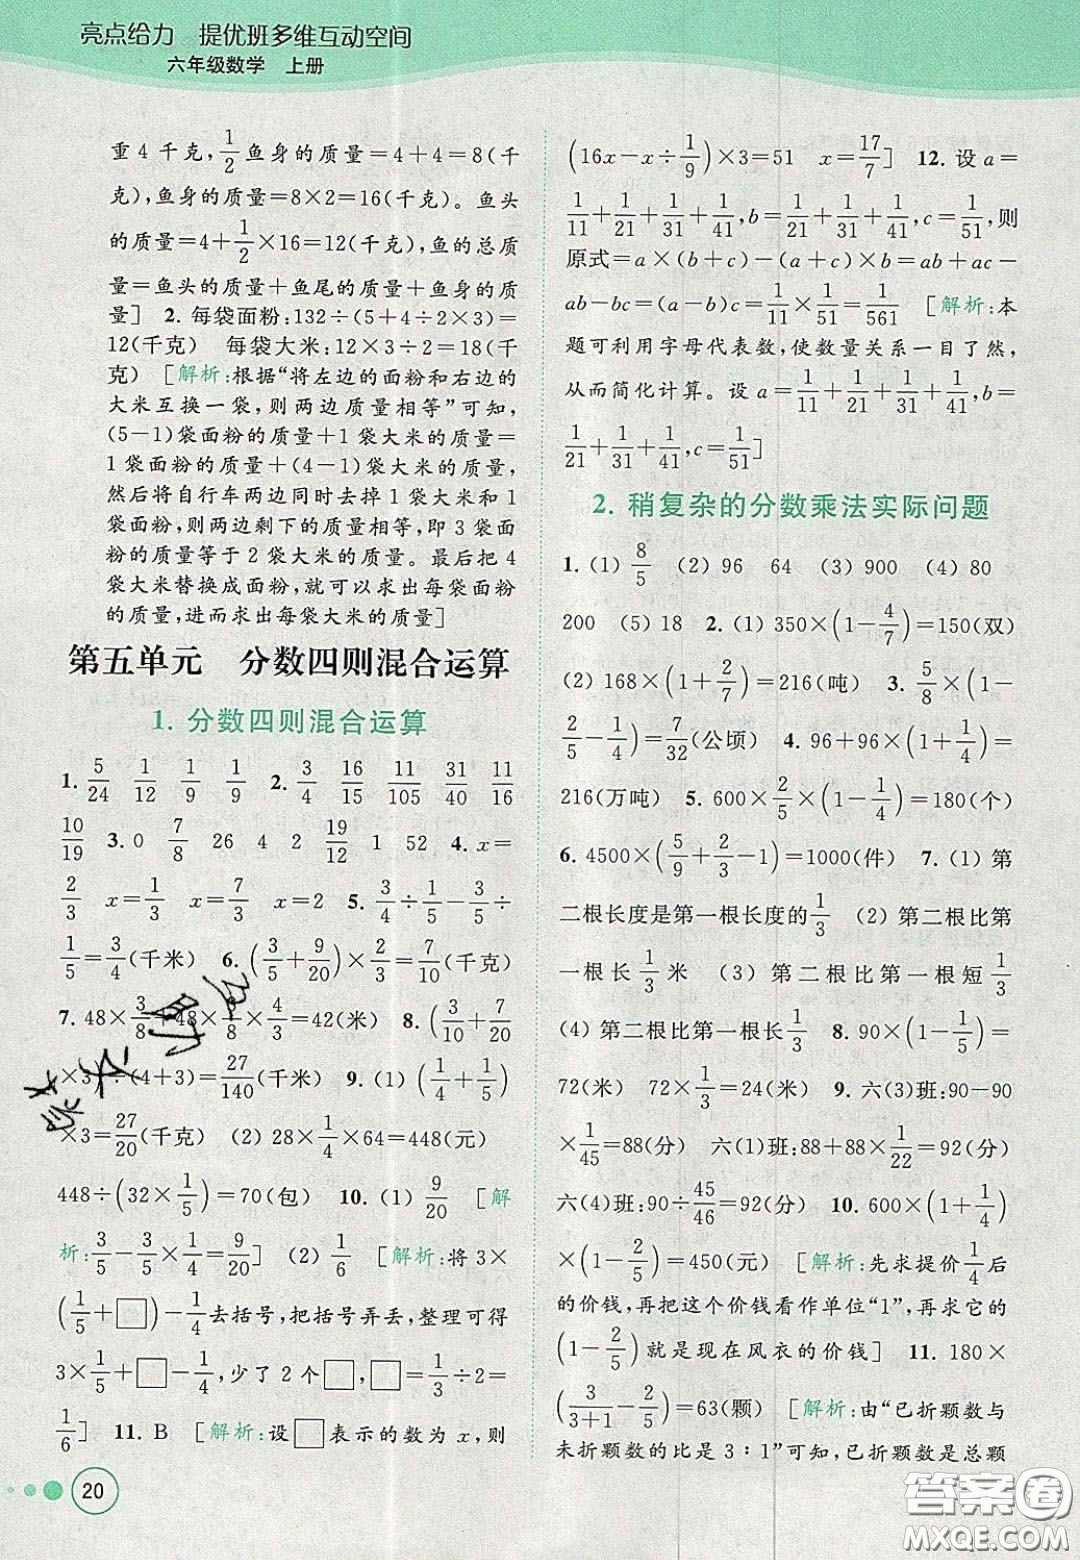 亮点给力 提优班多维互动空间
六年级数学 上册
重4千克,1/2鱼身的质量=4+4=8(千
克),鱼身的质量=8×2=16(千克)。鱼头
的质量=4+1/2×16=12(千克),鱼的总质
量=鱼头的质量+鱼尾的质量+鱼身的
质量] 2. 每袋面粉:132÷(5+4÷2×3)=
12(千克) 每袋大米:12×3÷2=18(千
克) [解析:根据“将左边的面粉和右边的
大米互换一袋,则两边质量相等”可知,
(5-1)袋面粉的质量+1袋大米的质量=
1袋面粉的质量+(4-1)袋大米的质量,
然后将自行车两边同时去掉1袋大米和1
袋面粉,两边剩下的质量相等,即3袋面
粉的质量等于2袋大米的质量。最后把4
袋大米替换成面粉,就可以求出每袋面粉
的质量,进而求出每袋大米的质量]
第五单元 分数四则混合运算
1. 分数四则混合运算
1. 5/24 1/12 1/9 1/9 2. 3/4 16/15 11/105 31/40 11/16
10/19 3. 0 7/8 26 4 2 19/12 1 52 4. x=
2/3 x=1/3 x=7/3 x=2 5. 3/4÷1/5-3/5÷
1/5=3/4(千米) 6. (3/5+9/20)×2/3=7/10(千克)
7. 48×3/8+48×/8×4/3=42(米) 8. (3/10+7/20
×3)÷(4+3)=27/140(千米) 9. (1) (1/4+1/5)
×3=27/20(千克) (2) 28×1/4×64=448(元)
448÷(32×1/5)=70(包) 10. (1) 9/20 [解
析:3/5-3/5×1/4=9/20] (2) 1/6 [解析:将3×
(1/5+□)-1/4去括号,把括号弄丢,整理可得
3×1/5+□-1/4,少了2个□,□=1/3÷2=
1/6] 11. B [解析:设□表示的数为x,则
20
(16x-x÷1/9)×3=51 x=17/7] 12. 设a=
1/11+1/21+1/31+1/41,b=1/21+1/31+1/41,c=1/51,则
原式=a×(b+c)-(a+c)×b=ab+ac-
ab-bc=(a-b)c=1/11×1/51=1/561 [解析:本
题可利用字母代表数,使数量关系一目了然,
从而简化计算。设a=1/11+1/21+1/31+1/41,b=
1/21+1/31+1/41,c=1/51]
2. 稍复杂的分数乘法实际问题
1. (1) 8/5 (2) 96 64 (3) 900 (4) 80
200 (5) 18 2. (1) 350×(1-4/7)=150(双)
(2) 168×(1+2/7)=216(吨) 3. 5/8×(1-
2/5-1/4)=7/32(公顷) 4. 96+96×(1+1/4)=
216(万吨) 5. 600×2/5×(1-1/4)=180(个)
6. 4500×(5/9+2/3-1)=1000(件) 7. (1) 第
二根长度是第一根长度的1/3 (2) 第二根比第
一根长1/3米 (3) 第二根比第一根短1/3
(4) 第二根比第一根长1/3 8. 90×(1-1/5)=
72(米) 72×1/3=24(米) 9. 六(3)班:90-90
×1/45=88(分) 六(1)班:88+88×1/22=92(分)
六(4)班:90÷45/46=92(分) 10. 600×(1+1/4)
×(1-2/5)=450(元) [解析:先求提价1/4后
的价钱,再把这个价钱看作单位“1”,再求它的
(1-2/5)就是现在风衣的价钱] 11. 180×
(3/3+1-2/5)=63(颗) [解析:由“已折颗数与
未折颗数的比是3∶1”可知,已折颗数是总颗
答案圈
MXQE.COM